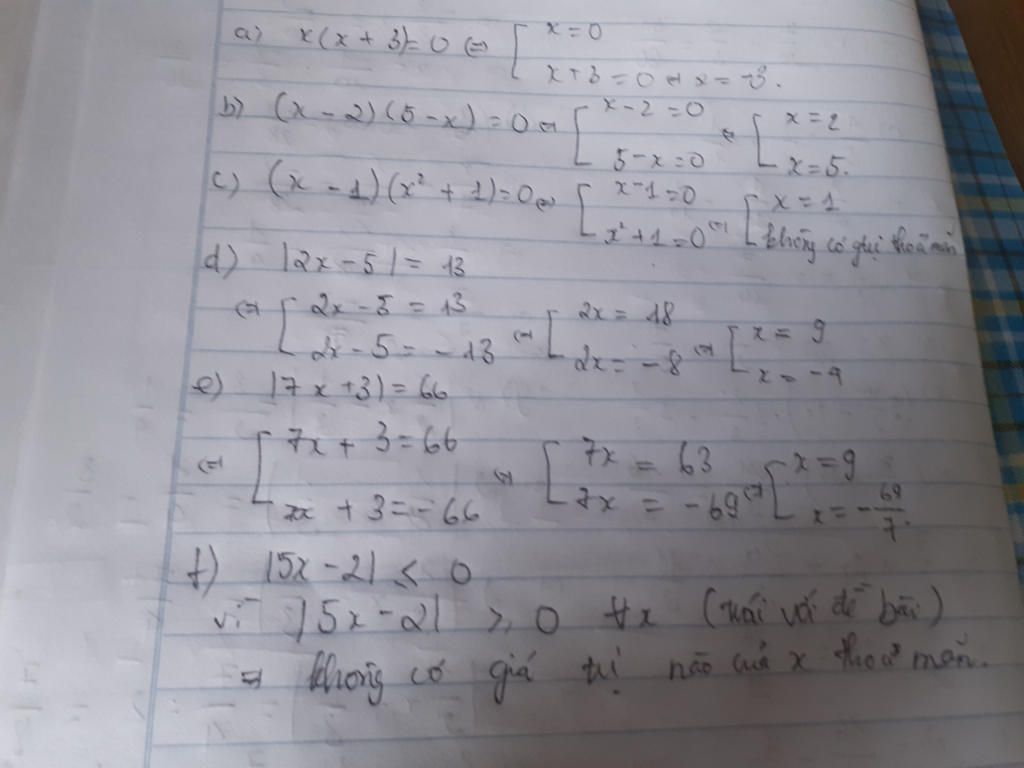 a) x(x + 3) = 0 ⇔ [ x = 0
x + 3 = 0 ⇔ x = -3.
b) (x - 2)(5 - x) = 0 ⇔ [ x - 2 = 0 ⇔ [ x = 2
5 - x = 0 x = 5.
c) (x - 1)(x² + 1) = 0 ⇔ [ x - 1 = 0 ⇔ [ x = 1
x² + 1 = 0 không có gtrị thoả mãn
d) |2x - 5| = 13
⇔ [ 2x - 5 = 13 ⇔ [ 2x = 18 ⇔ [ x = 9
2x - 5 = -13 2x = -8 x = -4
e) |7x + 3| = 66
⇔ [ 7x + 3 = 66 ⇔ [ 7x = 63 ⇔ [ x = 9
7x + 3 = -66 7x = -69 x = -69/7.
f) |5x - 2| ≤ 0
vì |5x - 2| ≥ 0 ∀x (trái với đề bài)
⇒ không có giá trị nào của x thoả mãn.